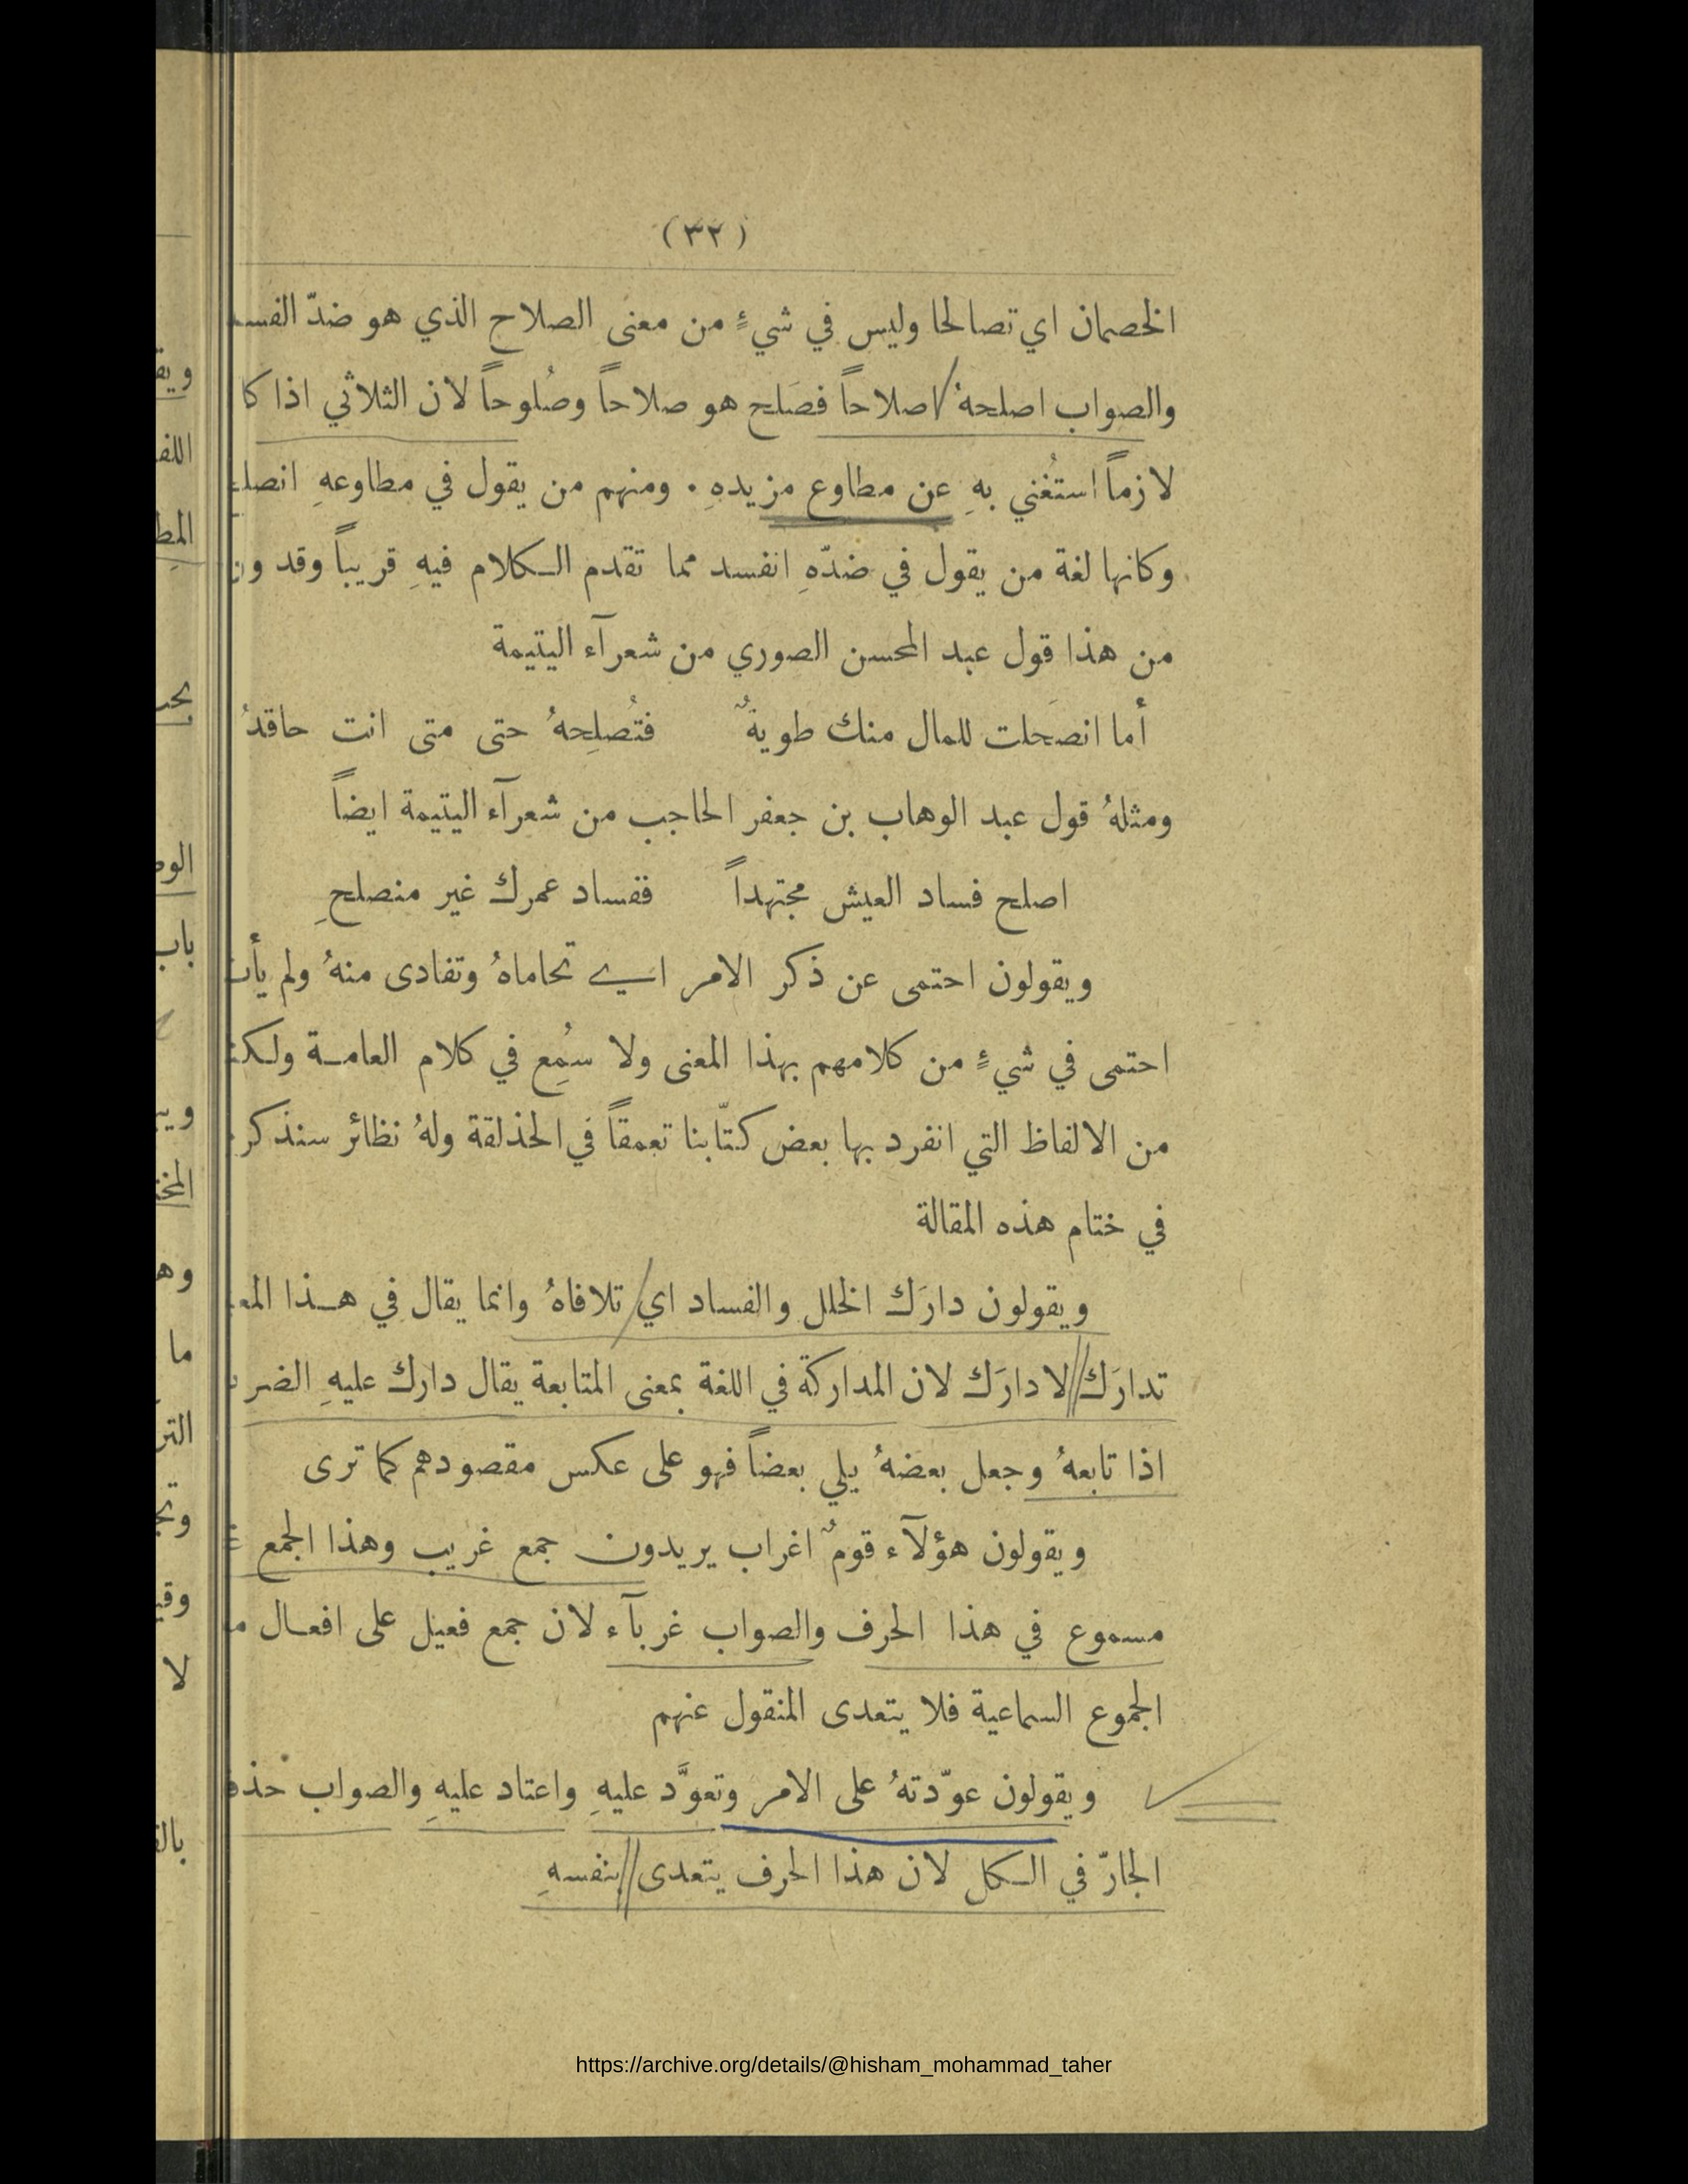 (٣٢)
الخصمان اي تصالحا وليس في شيءٍ من معنى الصلاح الذي هو ضدّ
والصواب اصلحهُ اصلاحاً فصَلح هو صلاحاً وصُلوحاً لان الثلاثي اذا
لازماً استُغني بهِ عن مطاوع مزيدهِ . ومنهم من يقول في مطاوعهِ
وكانها لغة من يقول في ضدّهِ انفسد مما تقدم الكلام فيهِ قريباً وقد
من هذا قول عبد المحسن الصوري من شعرآء اليتيمة
أما انصَحلت للمال منك طويةٌ فتُصلِحهُ حتى متى انت حاقدُ
ومثلهُ قول عبد الوهاب بن جعفر الحاجب من شعرآء اليتيمة ايضاً
اصلح فساد العيش مجتهداً ففساد عمرك غير منصلحِ
ويقولون احتمى عن ذكر الامر اي تحاماهُ وتفادى منهُ ولم
احتمى في شيءٍ من كلامهم بهذا المعنى ولا سُمِع في كلام العامة
من الالفاظ التي انفرد بها بعض كتّابنا تعمقاً في الحذلقة ولهُ نظائر
في ختام هذه المقالة
ويقولون دارَك الخلل والفساد اي تلافاهُ وانما يقال في هذا
تدارَك لا دارَك لان المداركة في اللغة بمعنى المتابعة يقال دارك عليهِ
اذا تابعهُ وجعل بعضهُ يلي بعضاً فهو على عكس مقصودهم كما ترى
ويقولون هؤلآء قومٌ اغراب يريدون جمع غريب وهذا الجمع
مسموع في هذا الحرف والصواب غربآء لان جمع فعيل على افعال
الجموع السماعية فلا يتعدى المنقول عنهم
ويقولون عوّدتهُ على الامر وتعوَّد عليهِ واعتاد عليهِ والصواب
الجارّ في الكل لان هذا الحرف يتعدى بنفسهِ
https://archive.org/details/@hisham_mohammad_taher